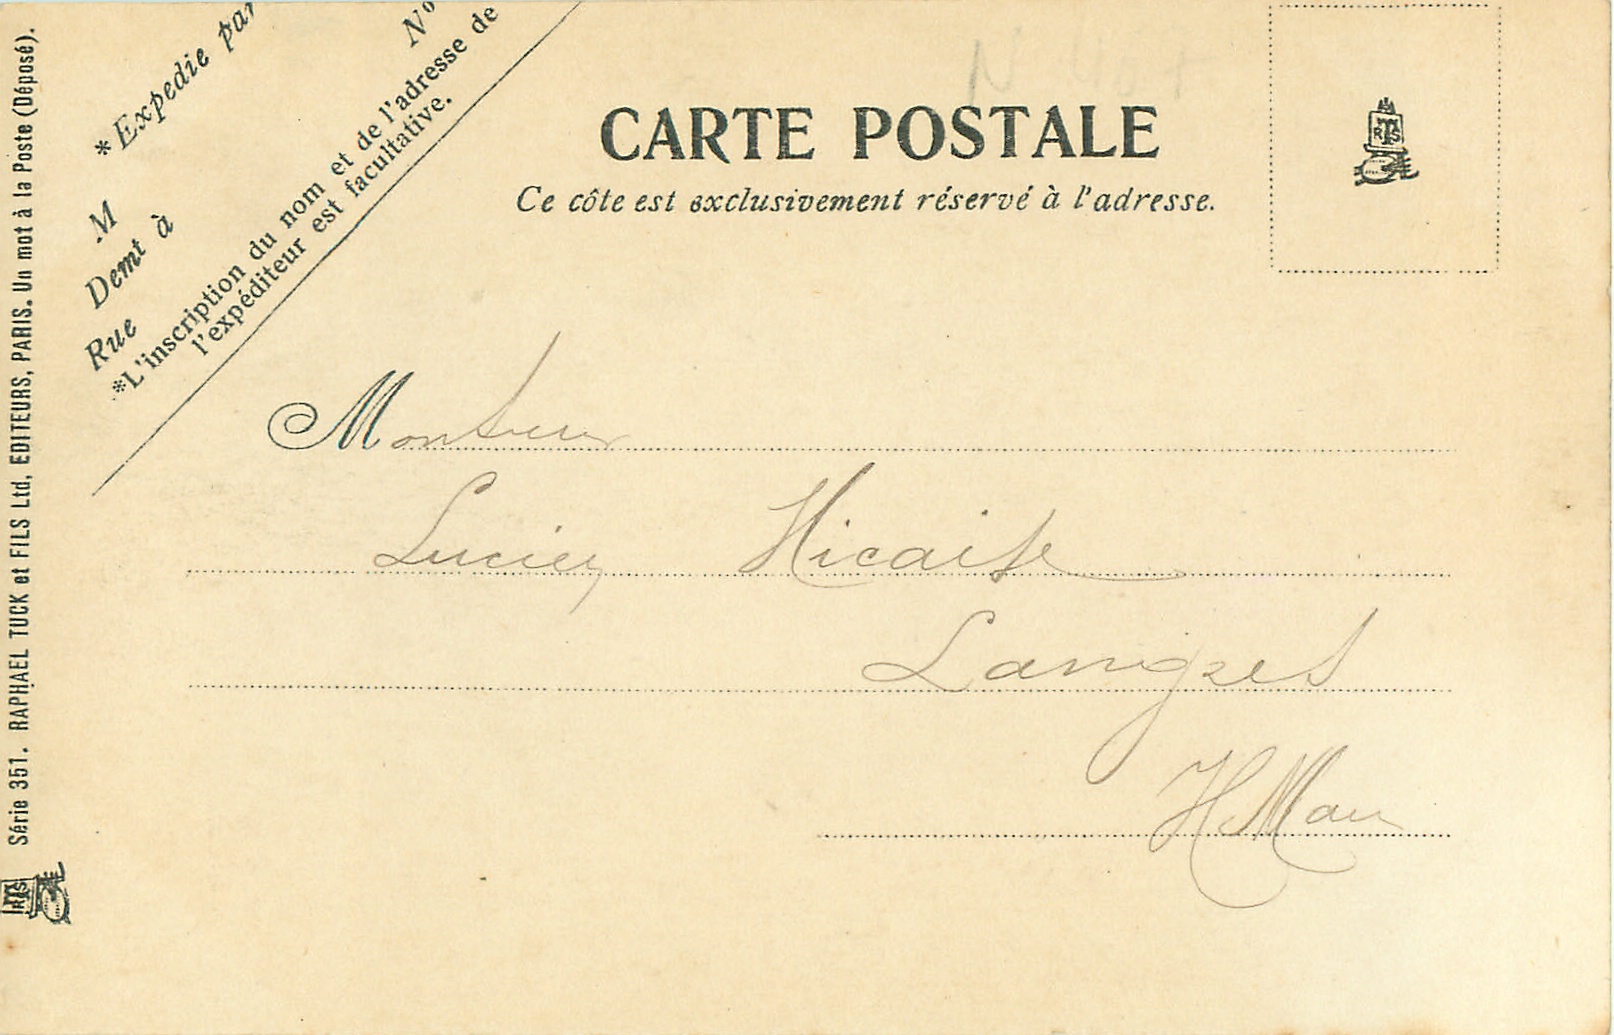 * Expedie par
M
Demt à
Rue
N°
*L'inscription du nom et de l'adresse de
l'expéditeur est facultative.
CARTE POSTALE
Ce côte est exclusivement réservé à l'adresse.
RTS
Monsieur
Lucien Nicaise
Langres
H Marn
Série 351. RAPHAEL TUCK et FILS Ltd, EDITEURS, PARIS. Un mot à la Poste (Déposé).
RTS